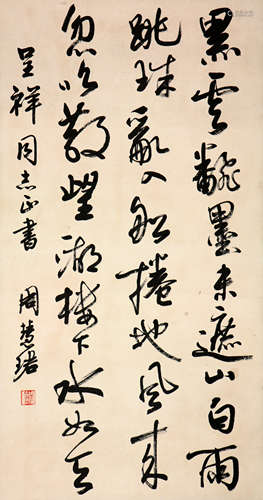 黑雲翻墨未遮山白雨
跳珠亂入船捲地風來
忽吹散望湖樓下水如天
呈祥同志正書 周慧珺